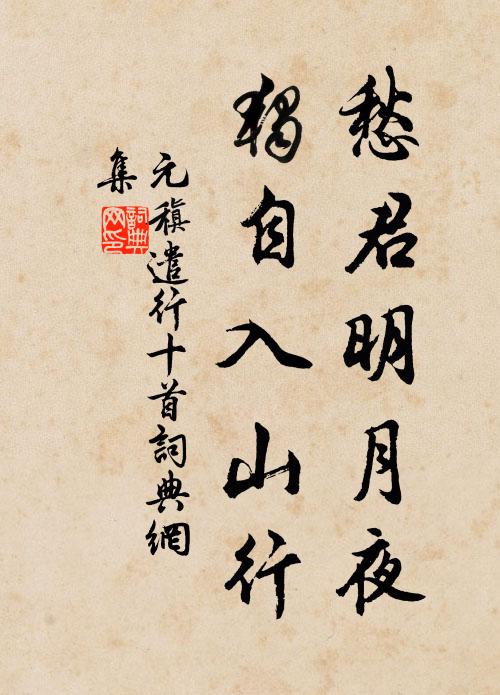 愁君明月夜
獨自入山行
元稹遣行十首詞典網
集
詞典网印